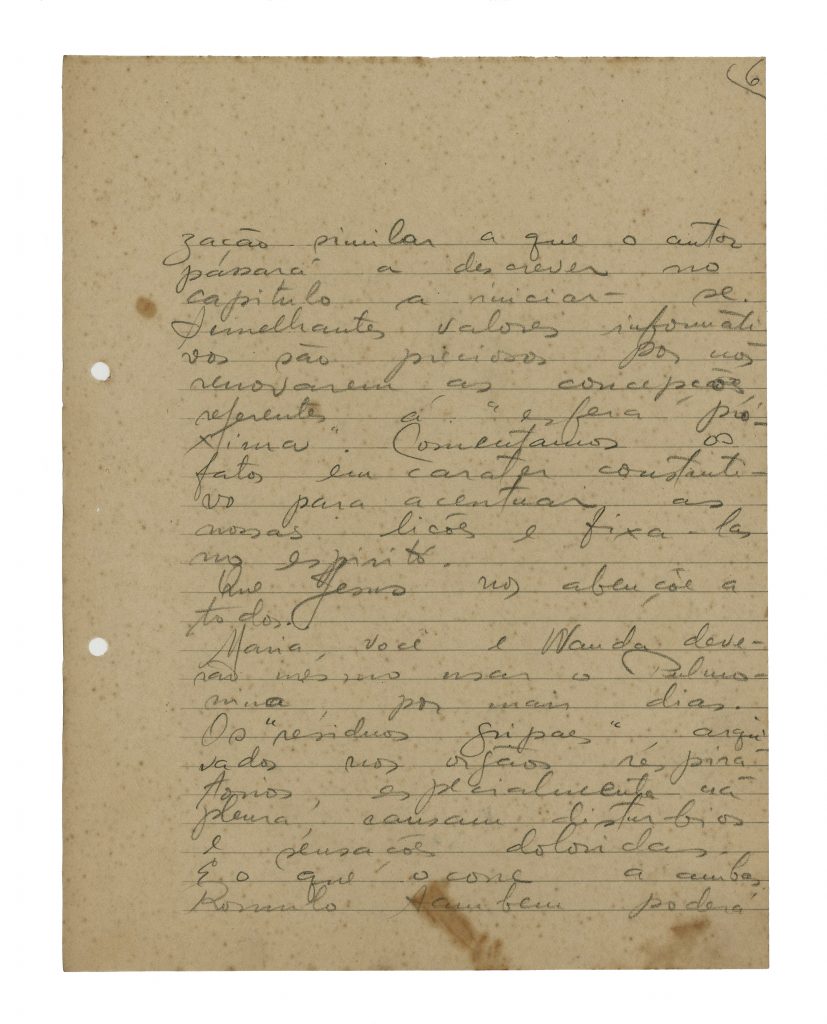 6
zação similar a que o autor
pássará a descrever no
capitulo a iniciar-se.
Semelhantes valores informáti
vos são preciosos por nós
renovarem as concepções
referentes á "esfera pró-
xima". Comentamos os
fatos em carater construti-
vo para acentuar as
nossas licões e fixa-las
no espirito.
Que Jesus nos abençõe a
todos.
Maria, você e Wanda deve-
rão mesmo usar o Pulmo-
nina, por mais dias.
Os "residuos gripaes" arqui
vados nos orgãos réspirá
torios, especialmente ná
pleura, causam disturbios
e sensações doloridas.
É o que ocorre a ambas.
Romulo tambem poderá